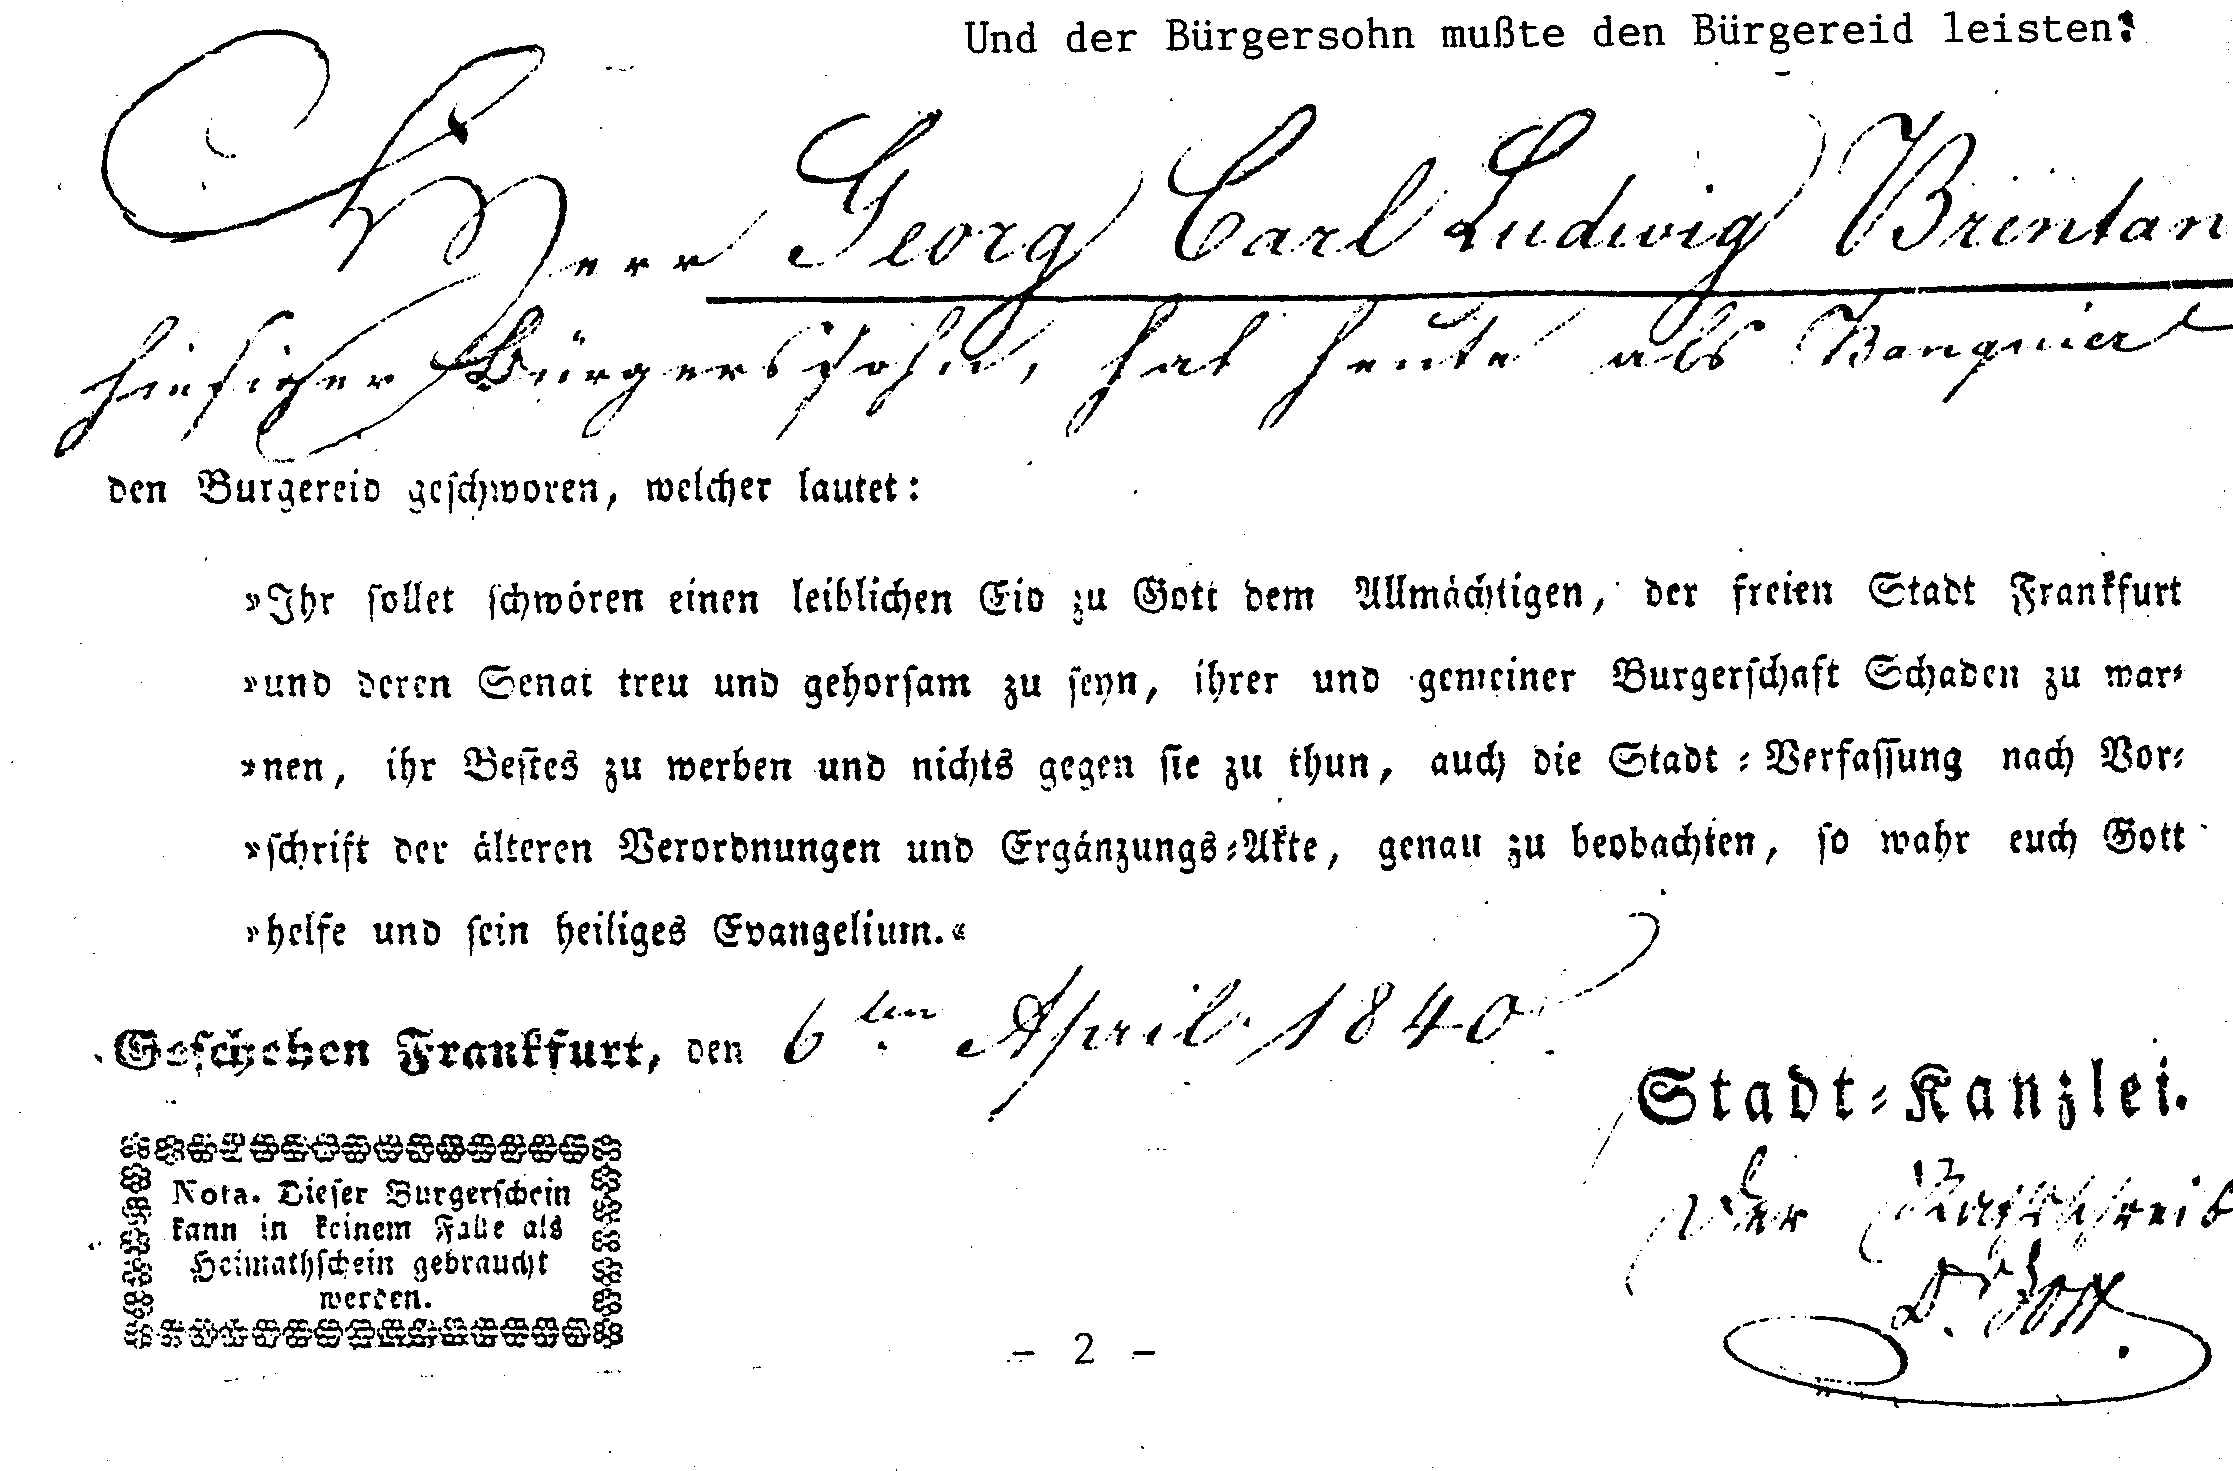 Und der Bürgersohn mußte den Bürgereid leisten:
Herr Georg Carl Ludwig Brentan
hiesiger Bürgerssohn, hat heute als Banquier
den Burgereid geschworen, welcher lautet:
»Ihr sollet schwören einen leiblichen Eid zu Gott dem Allmächtigen, der freien Stadt Frankfurt
»und deren Senat treu und gehorsam zu seyn, ihrer und gemeiner Burgerschaft Schaden zu war⸗
»nen, ihr Bestes zu werben und nichts gegen sie zu thun, auch die Stadt⸗Verfassung nach Vor⸗
»schrift der älteren Verordnungen und Ergänzungs⸗Akte, genau zu beobachten, so wahr euch Gott
»helfe und sein heiliges Evangelium.«
Geschehen Frankfurt, den 6ten April 1840
Stadt⸗Kanzlei.
Der Rathschreib
Dr.
Nota. Dieser Burgerschein
kann in keinem Falle als
Heimathschein gebraucht
werden.
- 2 -